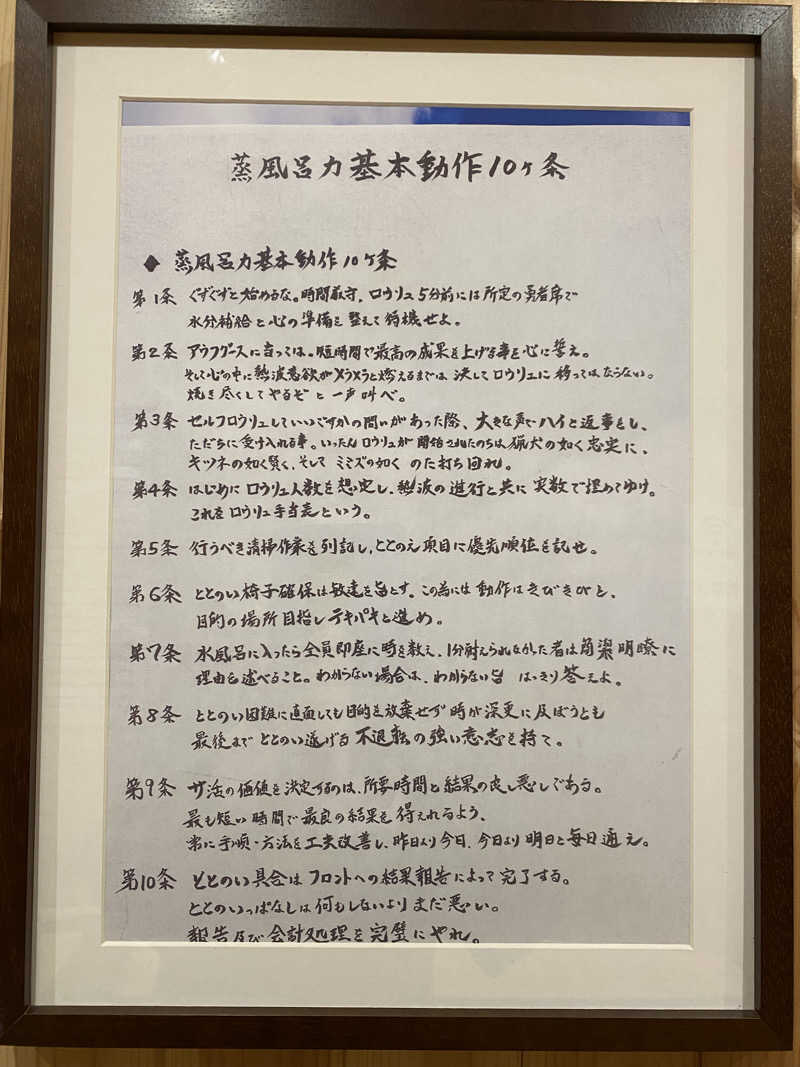 蒸風呂力基本動作10ヶ条
◆ 蒸風呂力基本動作10ケ条
第1条 ぐずぐずと始めるな。時間厳守、ロウリュ5分前には所定の勇者席で
水分補給と心の準備を整えて待機せよ。
第2条 アウフグースに当っては。短時間で最高の成果を上げる事を心に誓え。
そして心の中に熱波意欲がメラメラと燃えるまでは、決してロウリュに移ってはならない。
焼き尽くしてやるぞと一声叫べ。
第3条 セルフロウリュしていいですかの問いがあった際、大きな声でハイと返事をし、
ただちに受け入れる事。いったんロウリュが開始されたのちは猟犬の如く忠実に、
キツネの如く賢く、そして ミミズの如く のた打ち回れ。
第4条 はじめにロウリュ人数を想定し、熱波の進行と共に実数で埋めてゆけ。
これをロウリュ手当表という。
第5条 行うべき清掃作業を列記し、ととのえ項目に優先順位を記せ。
第6条 ととのい椅子確保は敏速を旨とす。この為には動作はきびきびと、
目的の場所目指しテキパキと進め。
第7条 水風呂に入ったら全員即座に時を数え、1分耐えられなかった者は簡潔明瞭に
理由を述べること。わからない場合は、わからない旨 はっきり答えよ。
第8条 ととのい困難に直面しても目的を放棄せず時が深更に及ぼうとも
最後までととのい遂げる不退転の強い意志を持て。
第9条 サ活の価値を決定するのは、所要時間と結果の良し悪しである。
最も短い時間で最良の結果を得えれるよう、
常に手順・方法を工夫改善し、昨日より今日、今日より明日と毎日通え。
第10条 ととのい具合はフロントへの結果報告によって完了する。
ととのいっぱなしは何もしないよりまだ悪い。
報告及び会計処理を完璧にやれ。